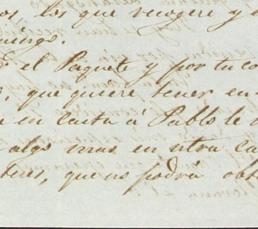 os, los que recogere y
mingo.
El Paquet y por tu co
, que quiere tener en
e en carta á Pablo le
algo mas en otra ca
que no podrá ob